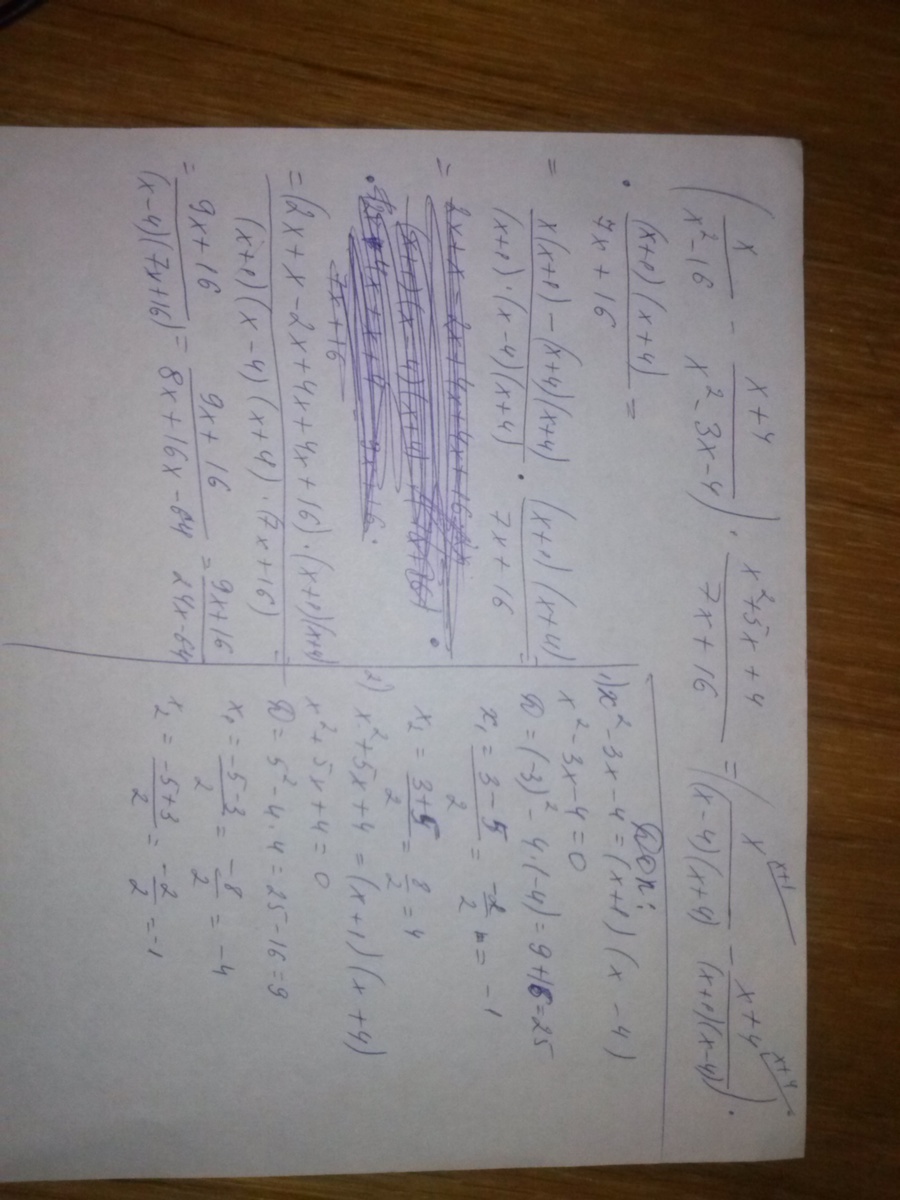 (x/(x²-16) - (x+4)/(x²-3x-4)) · (x²+5x+4)/(7x+16) = (x/((x-4)(x+4)) - (x+4)/((x+1)(x-4))) ·
x+1 x+4
· ((x+1)(x+4))/(7x+16) =
= (x(x+1)-(x+4)(x+4))/((x+1)·(x-4)(x+4)) · ((x+1)(x+4))/(7x+16) =
= ((2x+x-2x+4x+4x+16)·(x+1)(x+4))/((x+1)(x-4)(x+4)·7x+16) =
= (9x+16)/((x-4)(7x+16)) = (9x+16)/(8x+16x-64) = (9x+16)/(24x-64)
Доп:
1) x²-3x-4=(x+1)(x-4)
x²-3x-4=0
D=(-3)²-4·(-4)=9+16=25
x₁=(3-5)/2=-2/2=-1
x₂=(3+5)/2=8/2=4
2) x²+5x+4=(x+1)(x+4)
x²+5x+4=0
D=5²-4·4=25-16=9
x₁=(-5-3)/2=-8/2=-4
x₂=(-5+3)/2=-2/2=-1